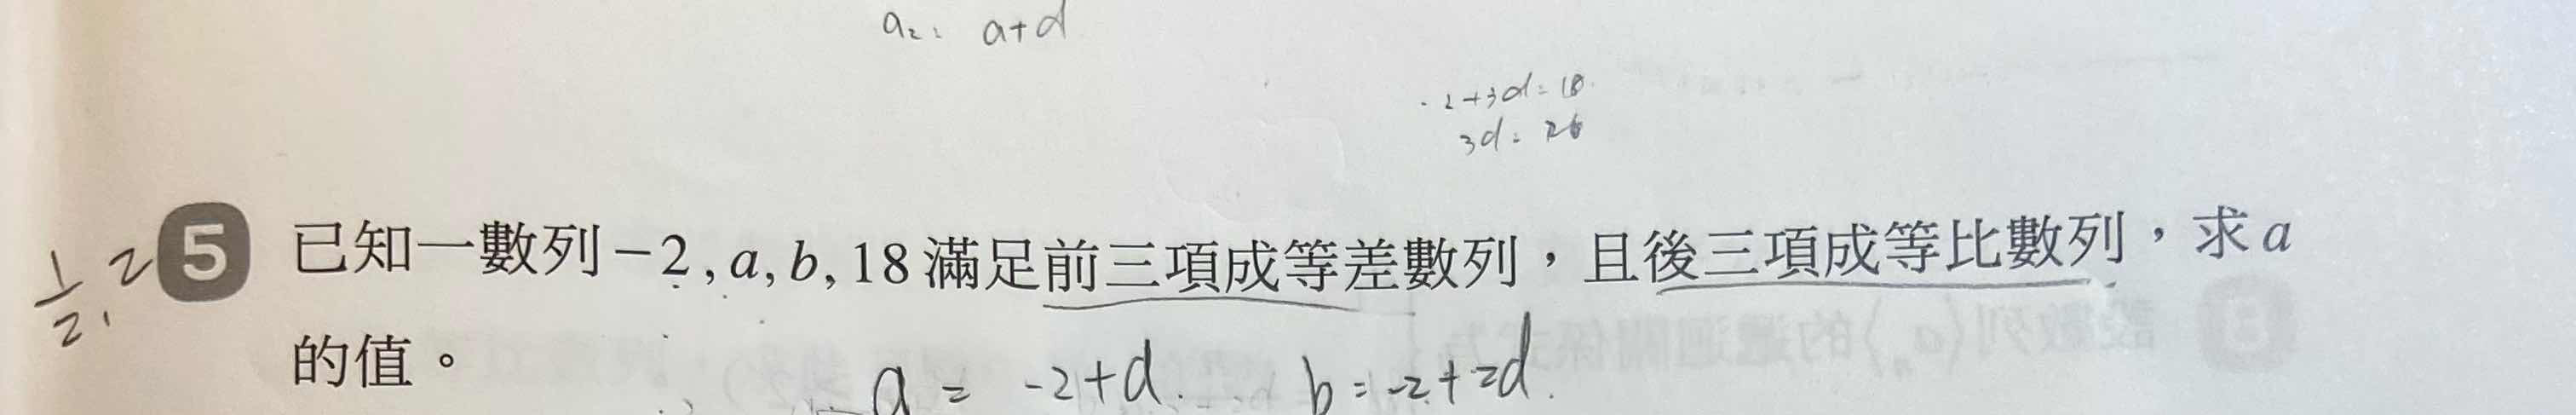 a₂: a+d
-2+3d=18
3d=26
1/2, 2
5 已知一數列-2, a, b, 18滿足前三項成等差數列，且後三項成等比數列，求a
的值。
a = -2+d. b=-2+2d.